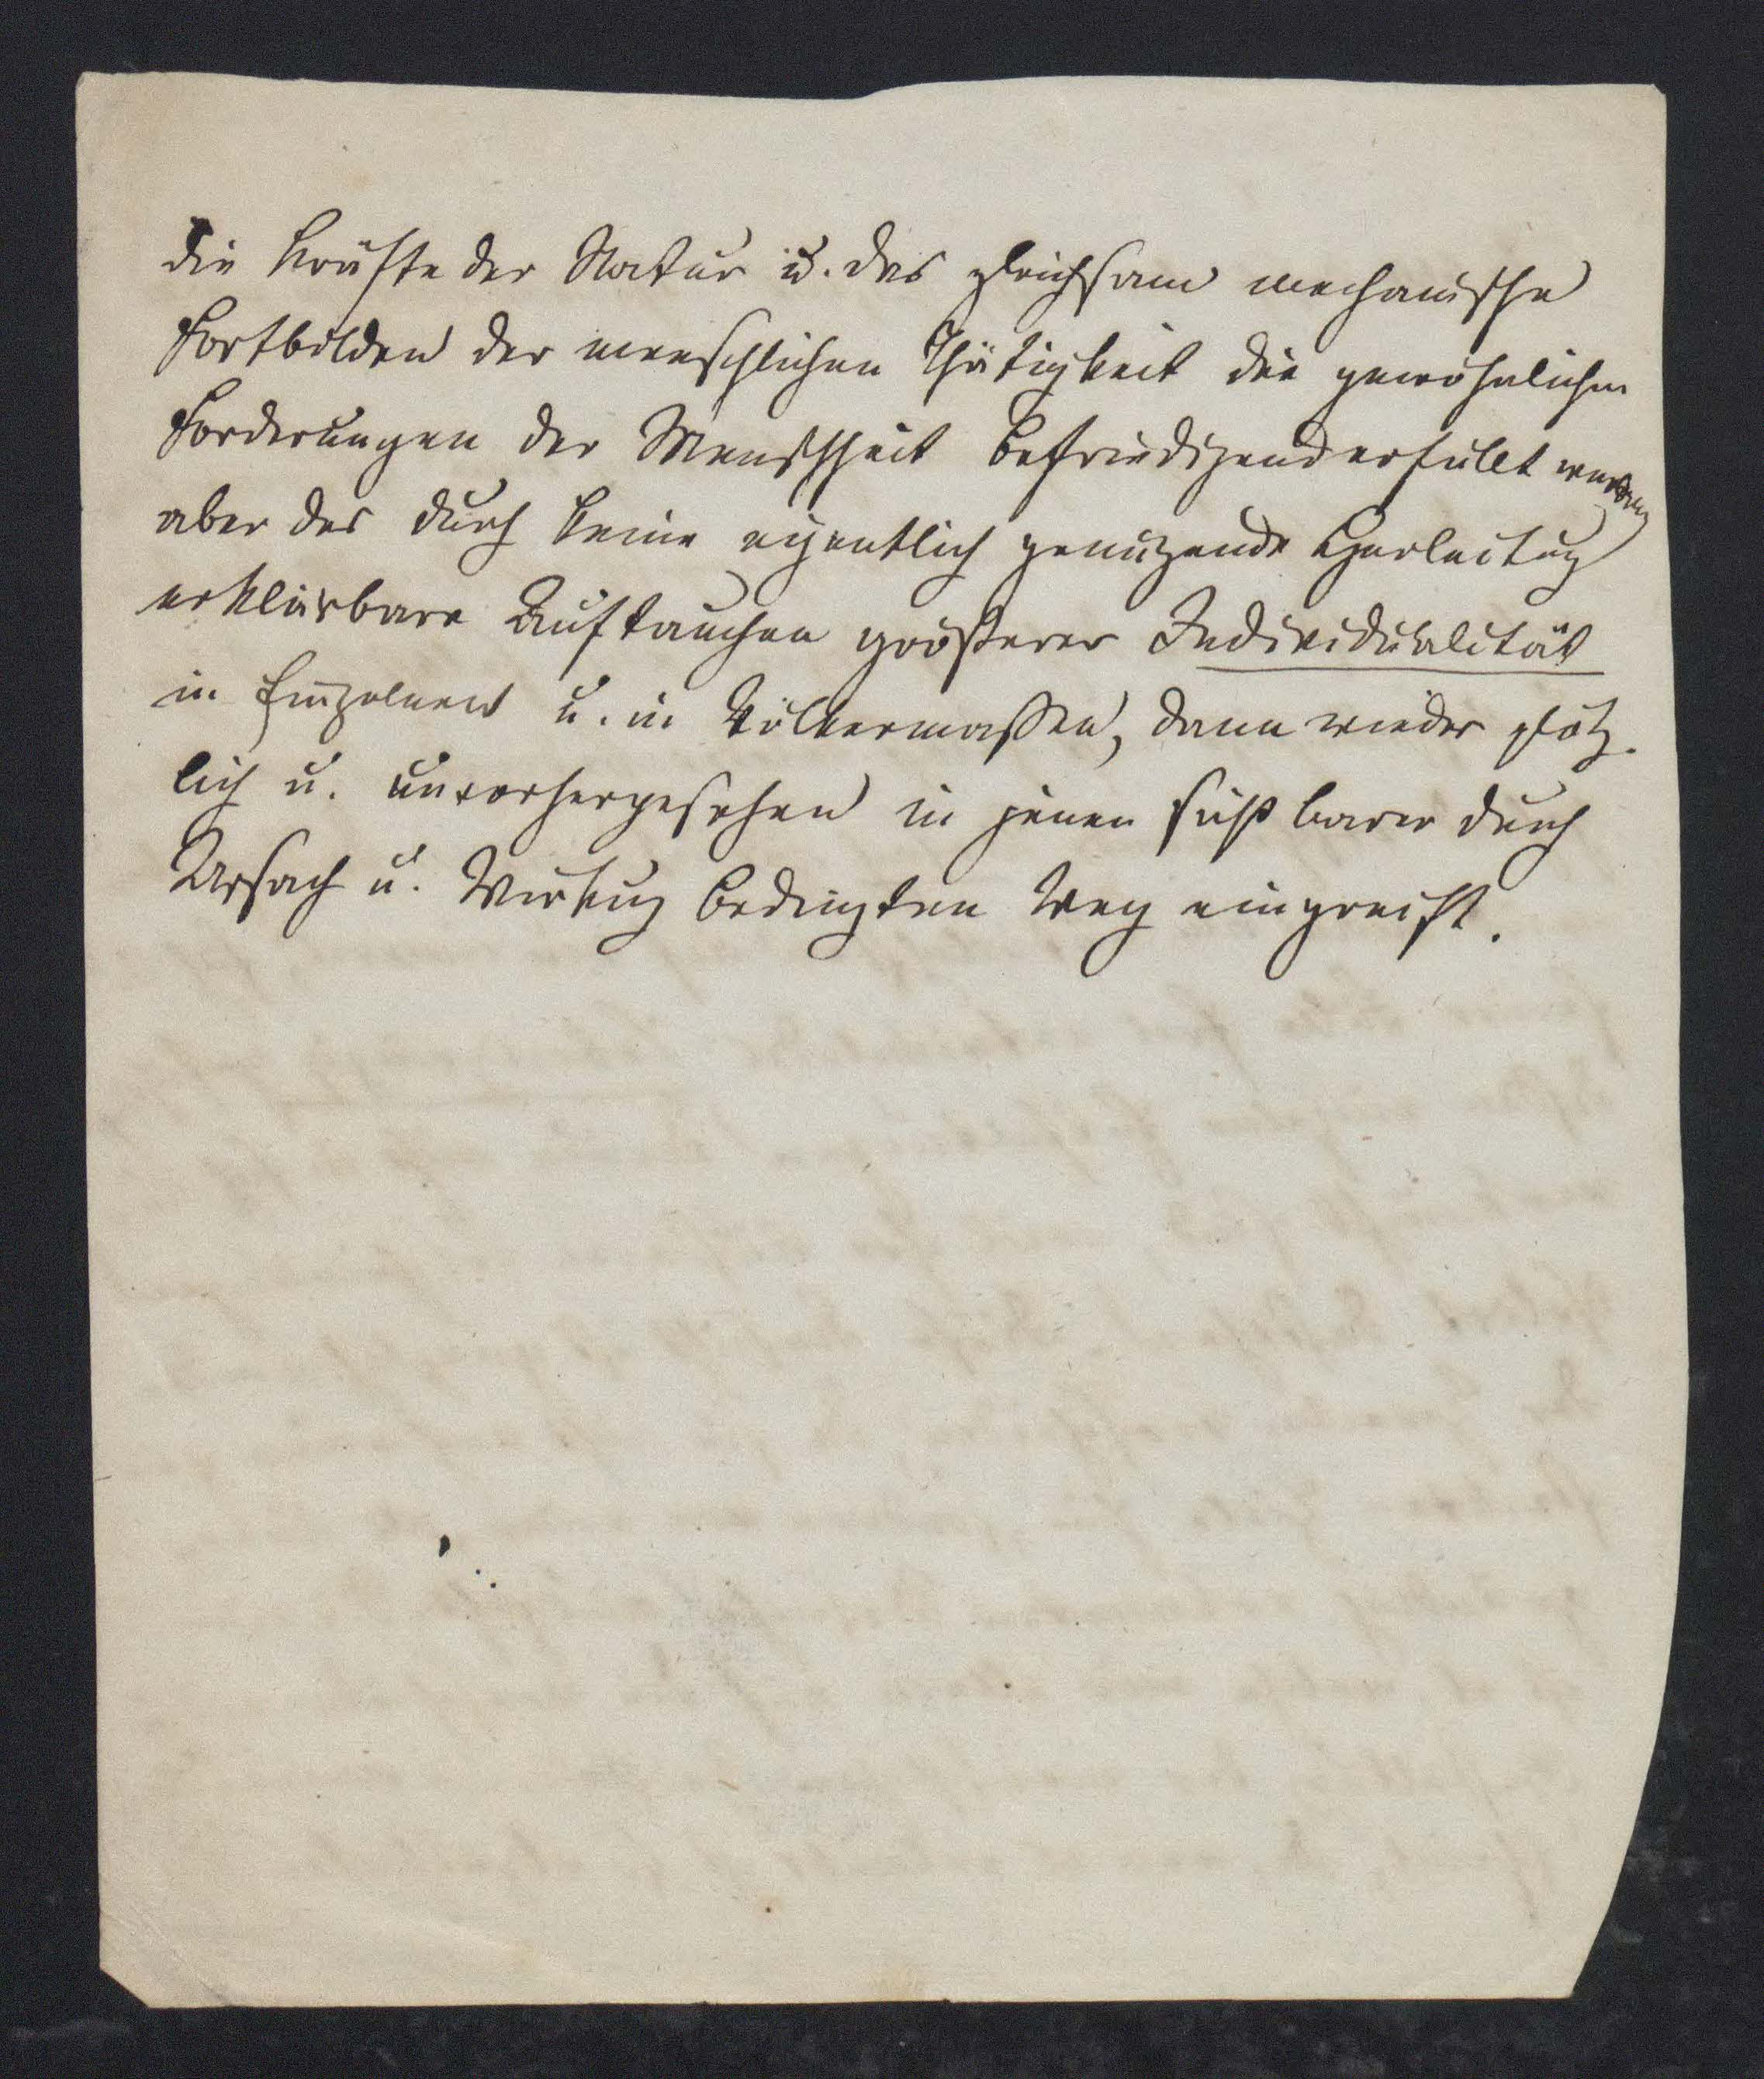 die Kräfte der Natur u. das gleichsam mechanische
Fortbilden der menschlichen Thätigkeit die gewöhnlichen
Forderungen der Menschheit befriedigend erfüllt werden
aber das durch keine eigentlich genügende Herleitug
erklärbare Auftauchen größerer Individualität
in Einzelnen u. in Völkermassen, dann wieder plötz-
lich u. unvorhergesehen in jenen durch
Ursach u. Wirkug bedingten Weg eingreift.